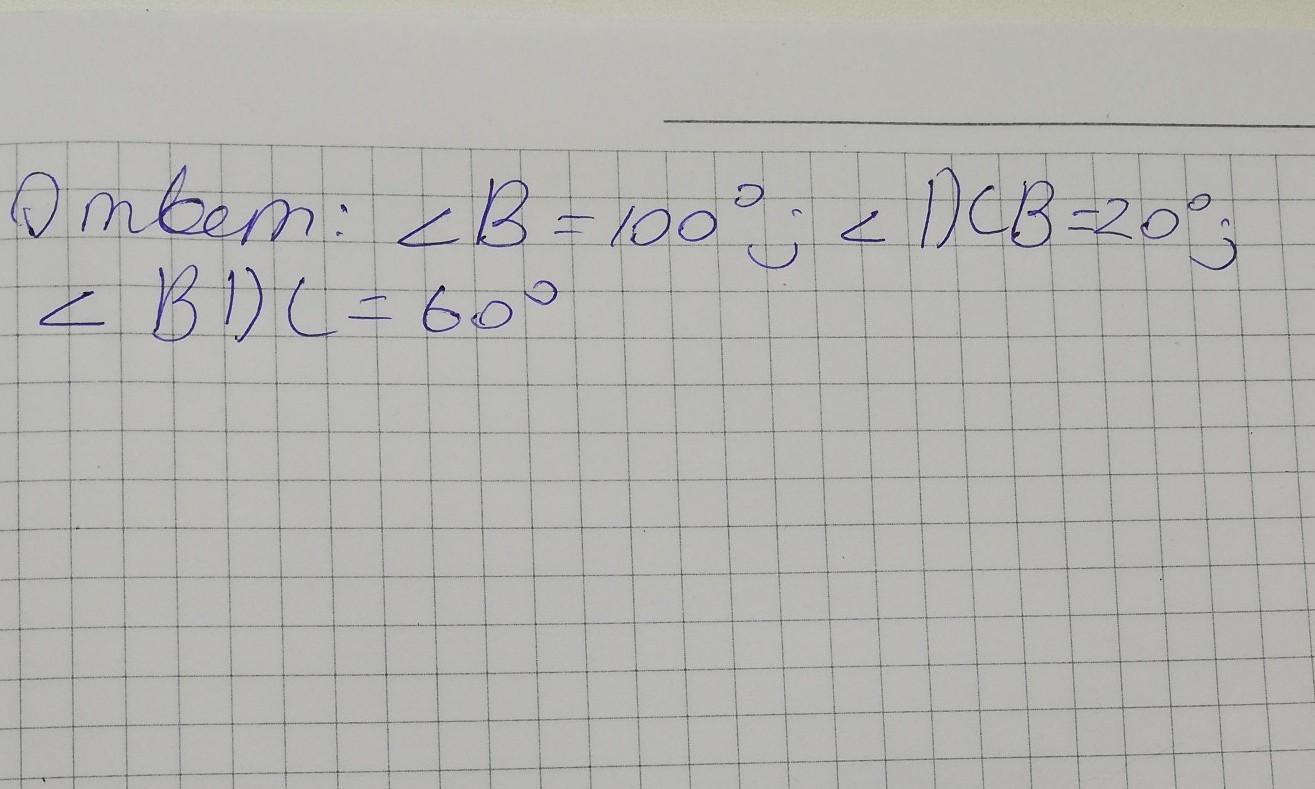 Ответ: ∠B = 100°; ∠DCB=20°;
∠BDC = 60°